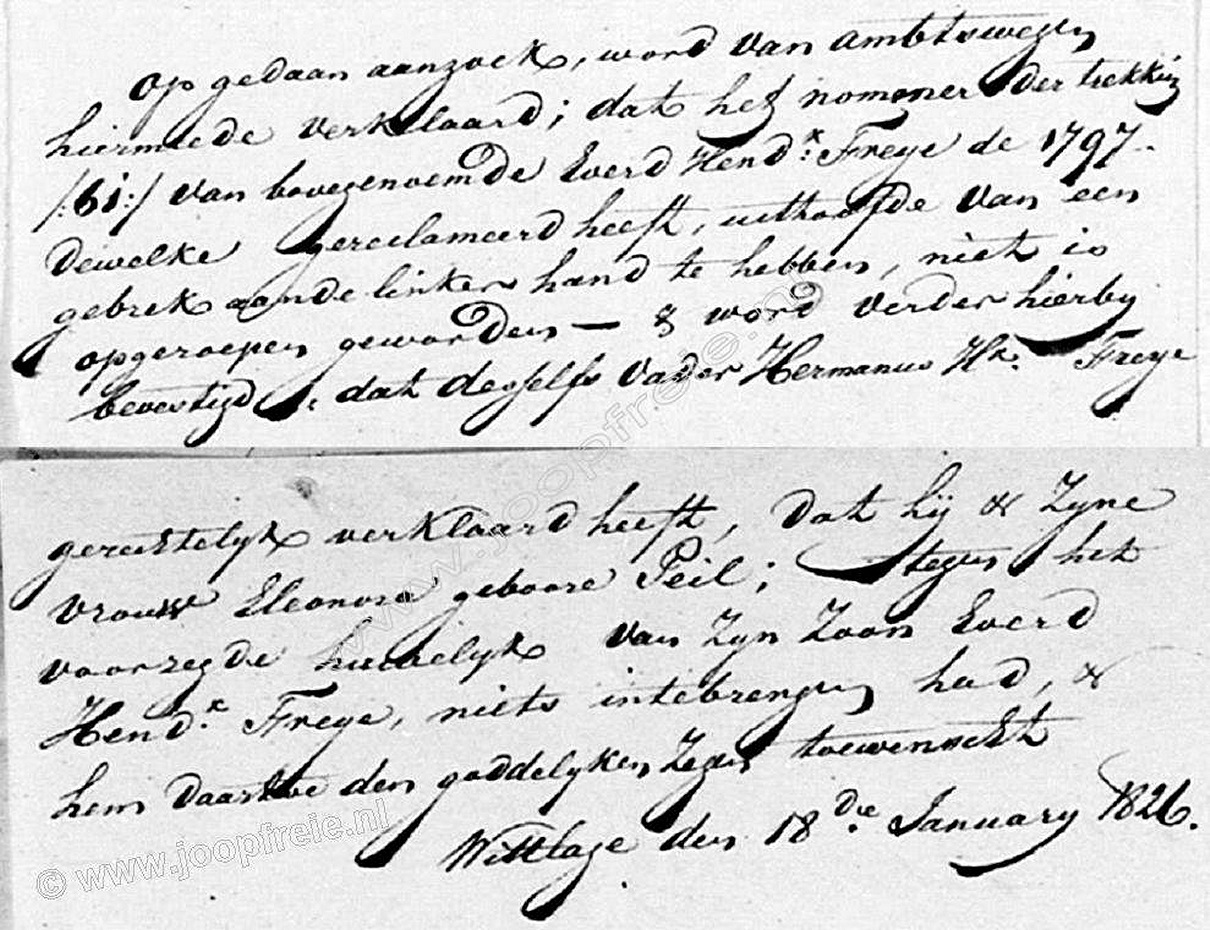 op gedaan aanzoek, word van ambtswegen
hiermeede verklaard; dat het nommer der trekking
/:61:/ van bovegenoemde Everd Hendk: Freye de 1797-
dewelke gereclameerd heeft, uithoofde van een
gebrek aan de linker hand te hebben, niet is
opgeroepen geworden — & word verder hierby
bevestigd, dat desselfs vader Hermanus Hk. Freye
gerechtelyk verklaard heeft, dat hij & zyne
vrouw Eleonora geboore Peil; tegen het
voorzegde huwelyk van zyn zoon Everd
Hendk. Freye, niets intebrengen had, &
hem daartoe den goddelyken zegen toewenscht
Wittlage den 18die January 1826.
www.joopfreie.nl
© www.joopfreie.nl